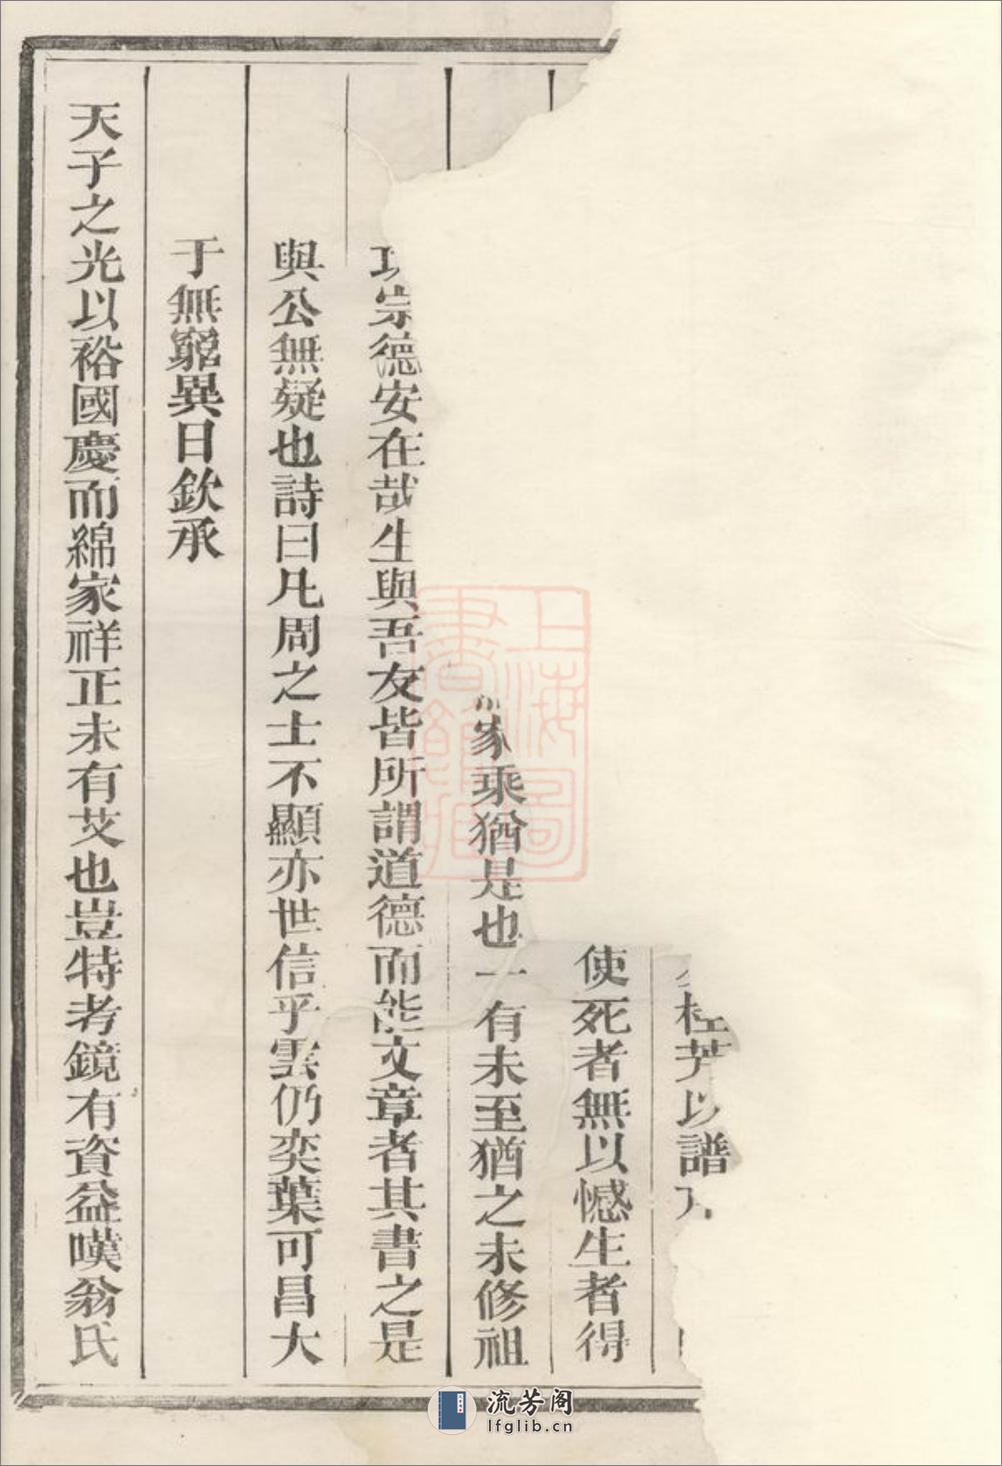 桂芳以譜
使死者無以憾生者得
家乘猶是也一有未至猶之未修祖
功宗德安在哉生與吾友皆所謂道德而能文章者其書之是
與公無疑也詩曰凡周之士不顯亦世信乎雲仍奕葉可昌大
于無窮異日欽承
天子之光以裕國慶而綿家祥正未有艾也豈特考鏡有資益嘆翁氏
上海圖書館藏
流芳阁
lfglib.cn